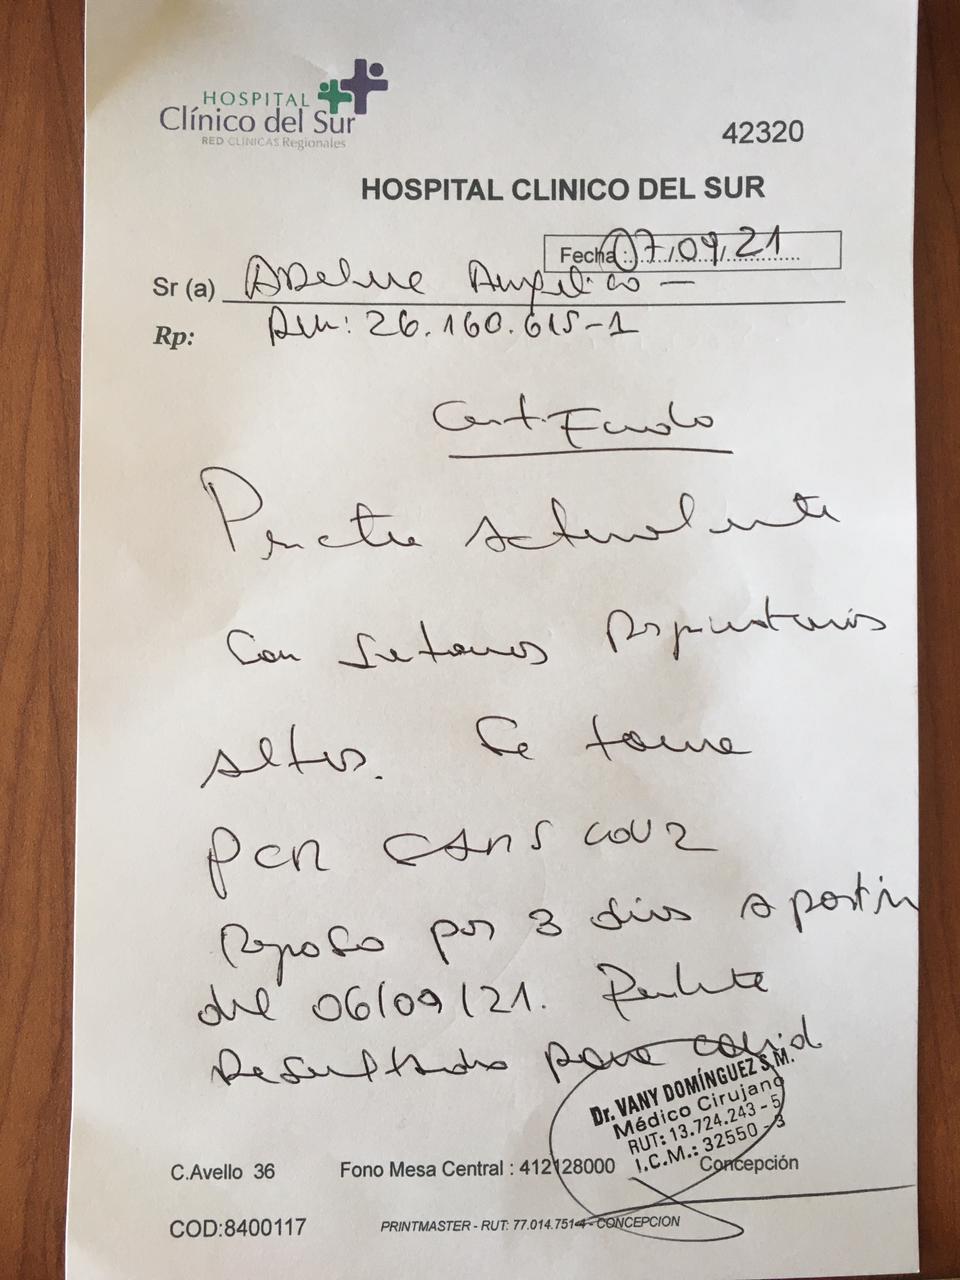 HOSPITAL
Clínico del Sur
RED CLINICAS Regionales
42320
HOSPITAL CLINICO DEL SUR
Fecha: 07/09/21
Sr (a)
Rp: Rut: 26.160.615-1
Certificado
Paciente actualmente
con síntomas respiratorios
altos. Se toma
PCR SARS COV2
Reposo por 3 días a partir
del 06/09/21. Pendiente
Resultado para covid
Dr. VANY DOMÍNGUEZ S.M.
Médico Cirujano
RUT: 13.724.243-5
I.C.M.: 32550-3
C.Avello 36 Fono Mesa Central : 412128000 Concepción
COD:8400117 PRINTMASTER - RUT: 77.014.751-4 - CONCEPCION